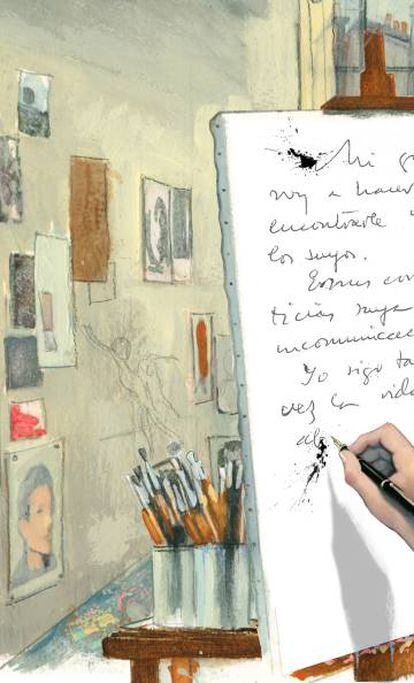 Mi
voy a hacer
encontrarle
los suyos.
ticias suya
incomunicac
Yo sigo ta
vez la vida
al